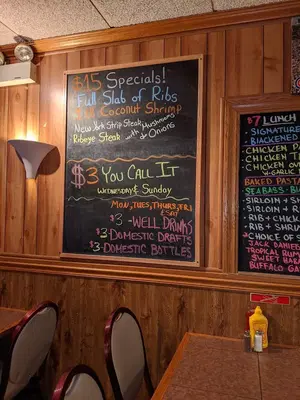 $15 Specials!
Full Slab of Ribs
Coconut Shrimp
New York Strip Steak with Mushrooms
Ribeye Steak & Onions
$3 You Call It
Wednesday & Sunday
Mon, Tues, Thurs, Fri
& Sat
$3 - Well Drinks
$3 - Domestic Drafts
$3 - Domestic Bottles
$7 Lunch
Signature
Blackened
Chicken
Chicken
Chicken
Baked Pasta
Seabass
Sirloin &
Sirloin + Shr
Rib + Chick
Rib + Shru
*Choice of S
Jack Daniel
Tropical Rum
Sweet Hab
Buffalo Ga